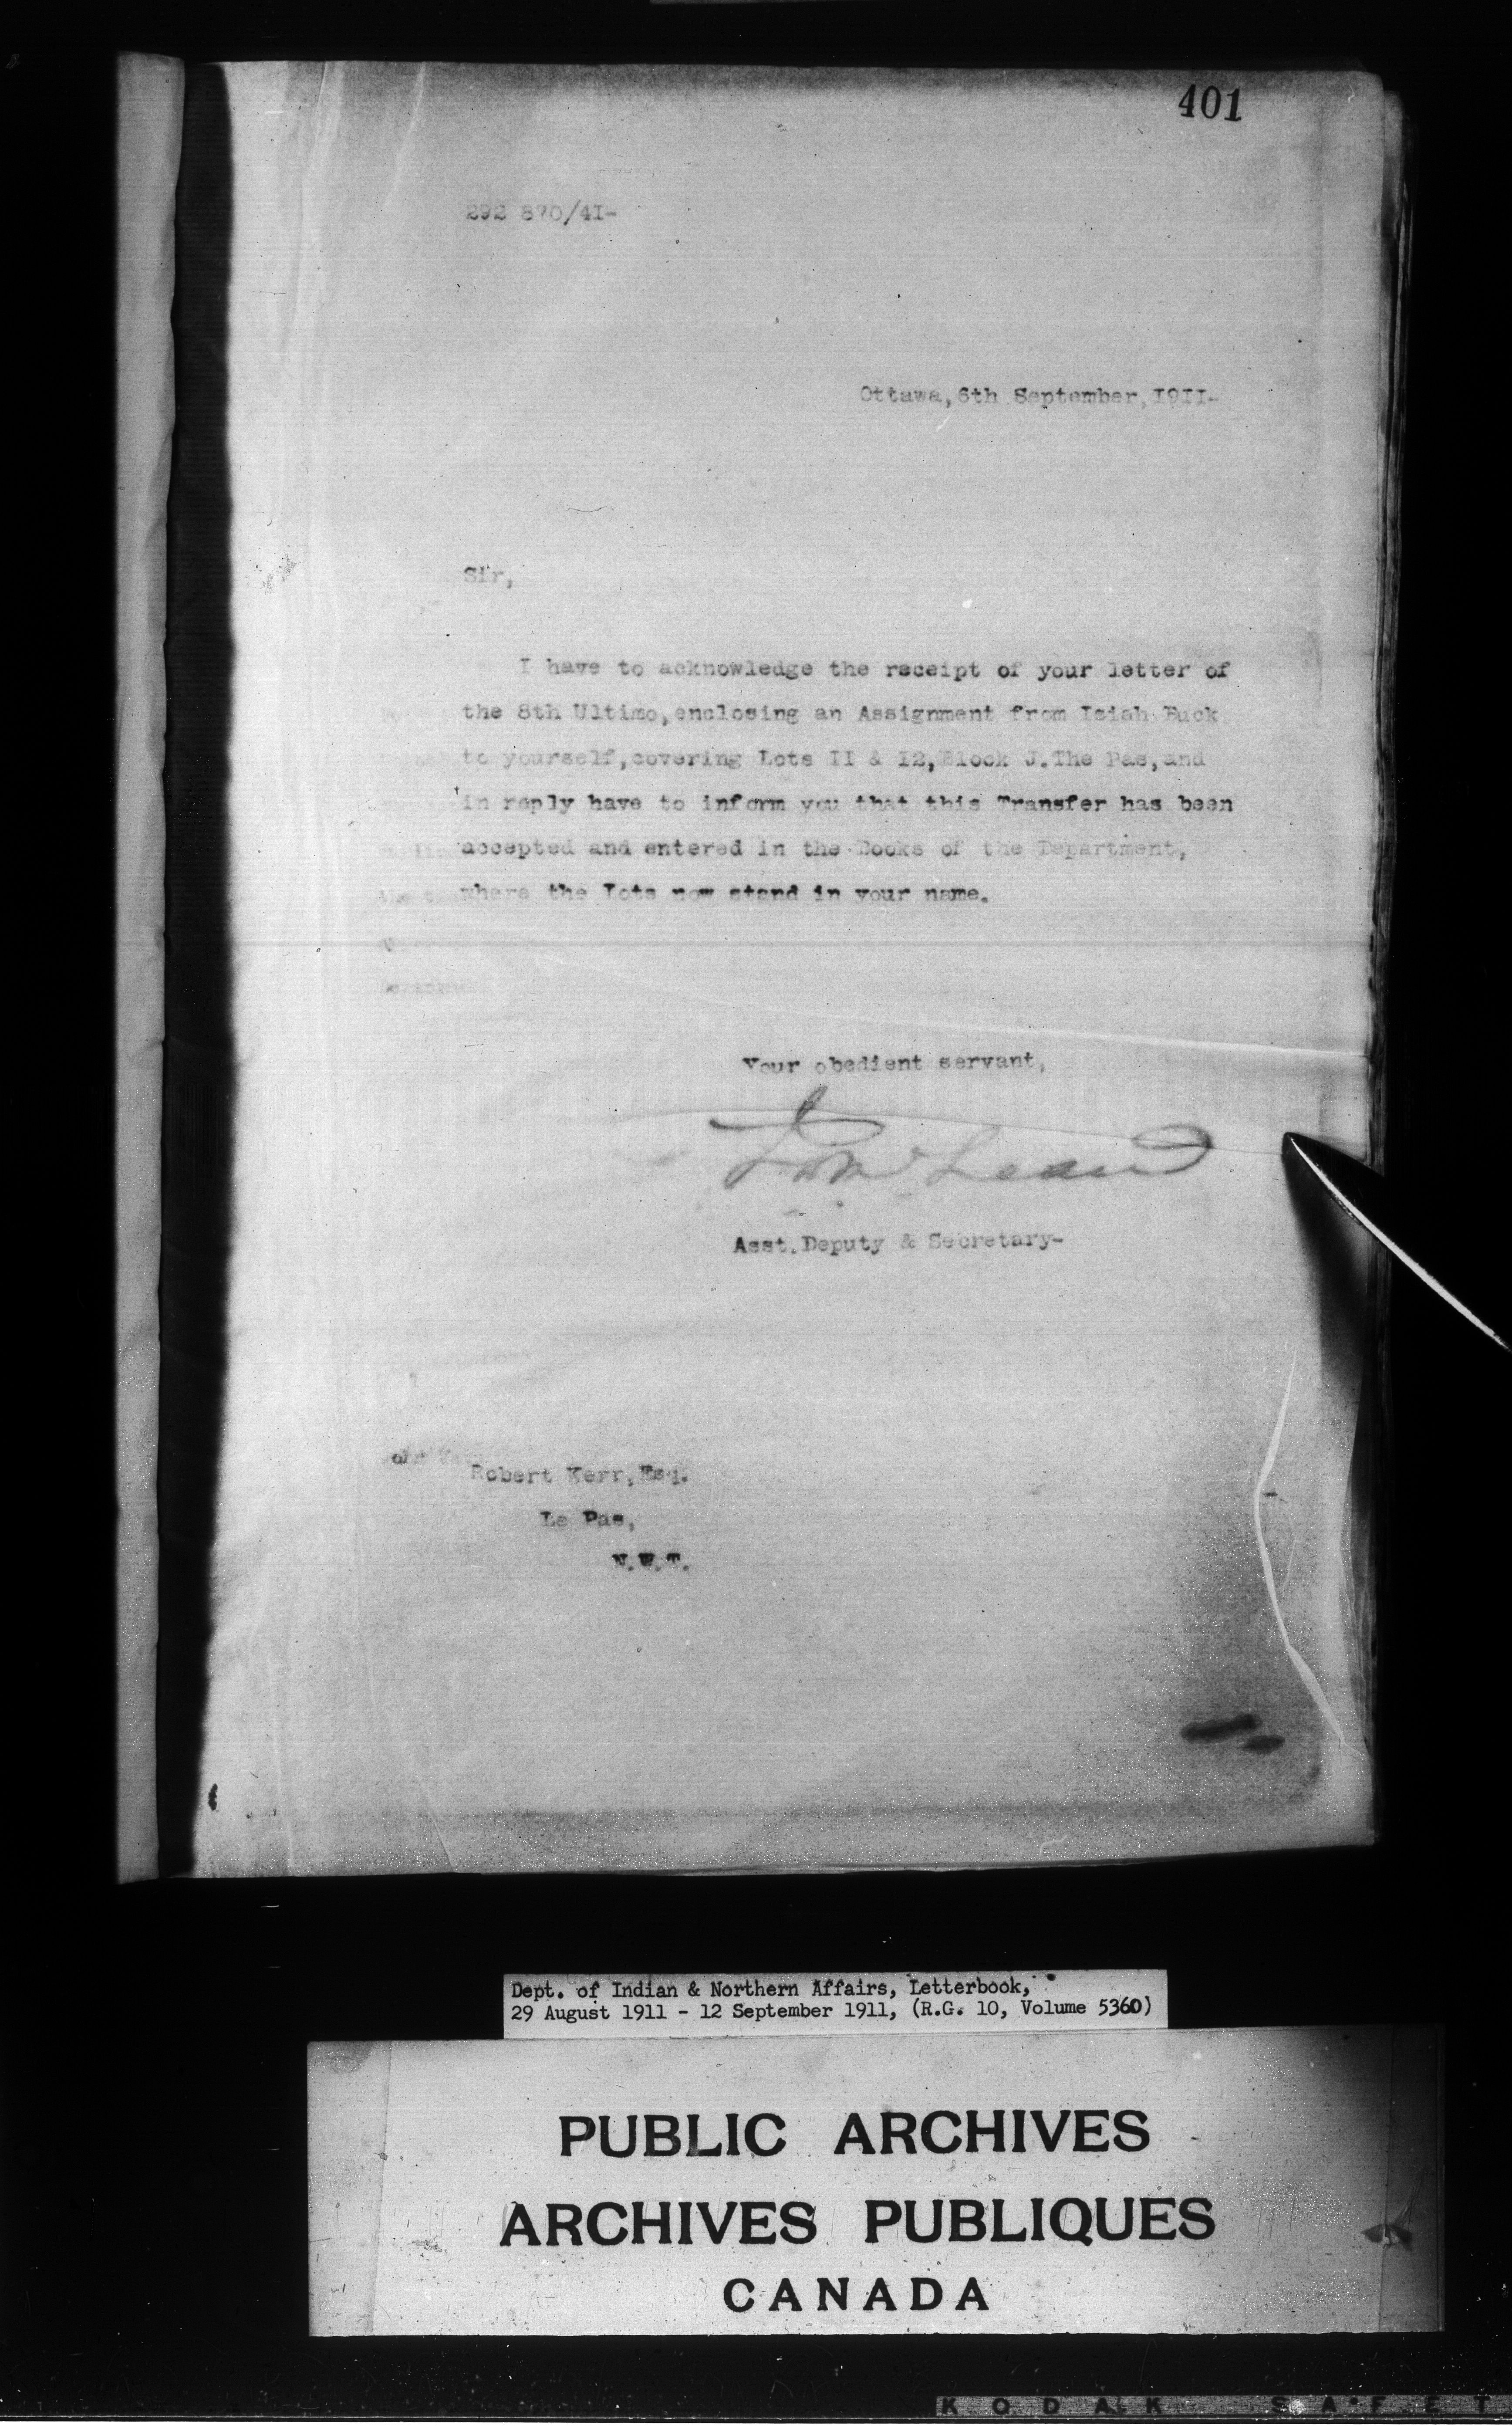 401
292 870/4I-
Ottawa, 6th September, I9II-
Sir,
I have to acknowledge the receipt of your letter of
the 8th Ultimo, enclosing an Assignment from Isiah Buck
to yourself, covering Lots II & I2, Block J. The Pas, and
in reply have to inform you that this Transfer has been
accepted and entered in the Books of the Department,
where the Lots now stand in your name.
Your obedient servant,
Asst. Deputy & Secretary-
Robert Kerr, Esq.
Le Pas,
N.W.T.
Dept. of Indian & Northern Affairs, Letterbook,
29 August 1911 - 12 September 1911, (R.G. 10, Volume 5360)
PUBLIC ARCHIVES
ARCHIVES PUBLIQUES
CANADA
KODAK SAFET